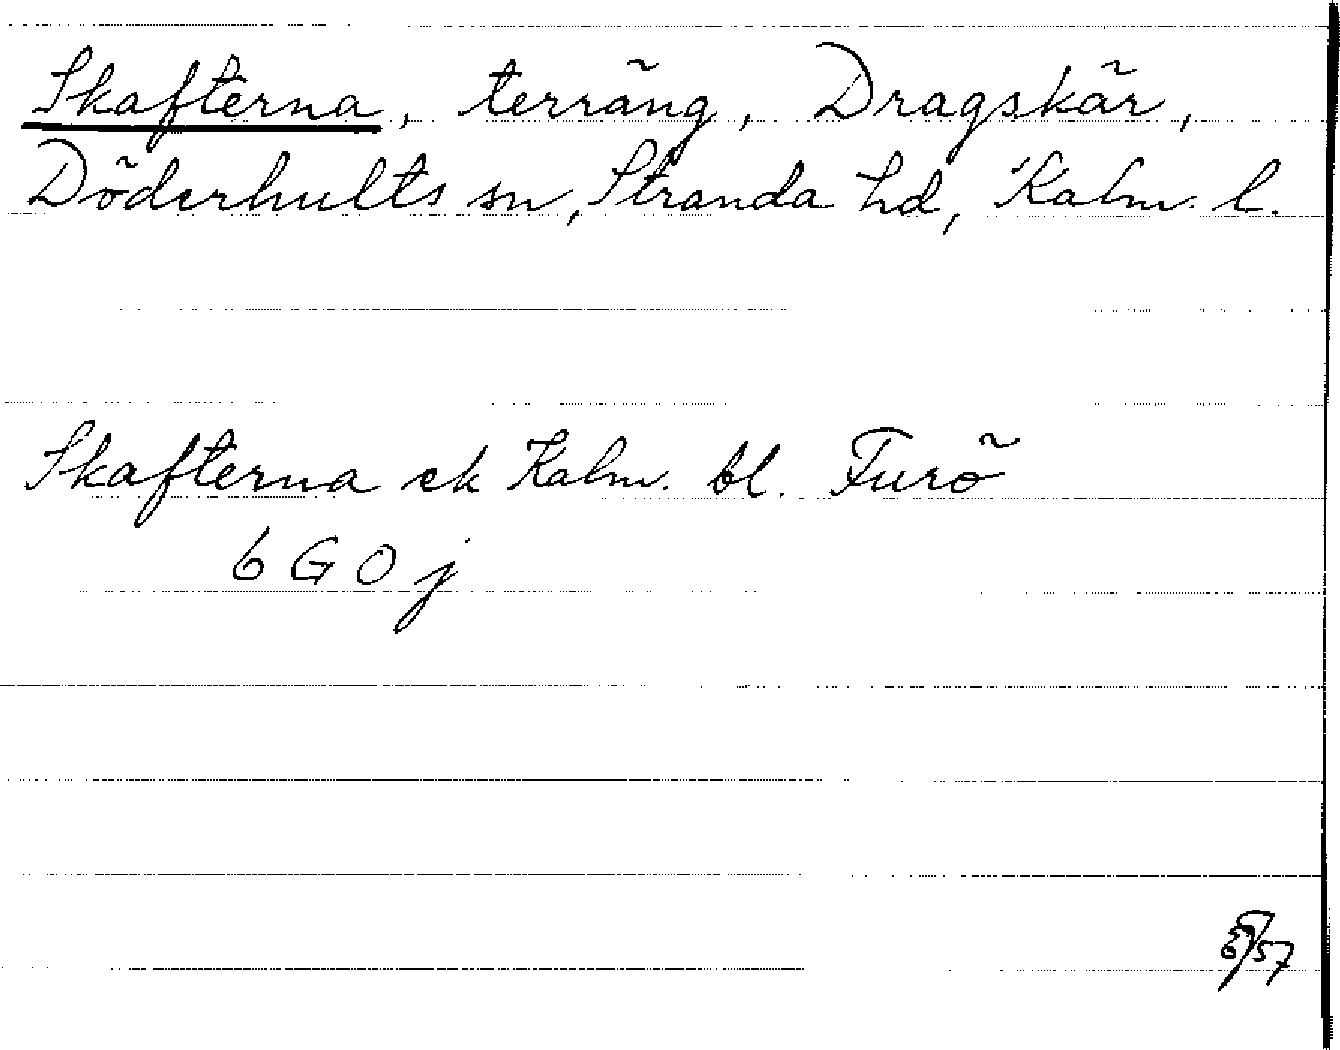 Skafterna, terräng, Dragskär,
Döderhults sn, Stranda hd, Kalm. l.
Skafterna ek Kalm. bl. Furö
6 G O j
57